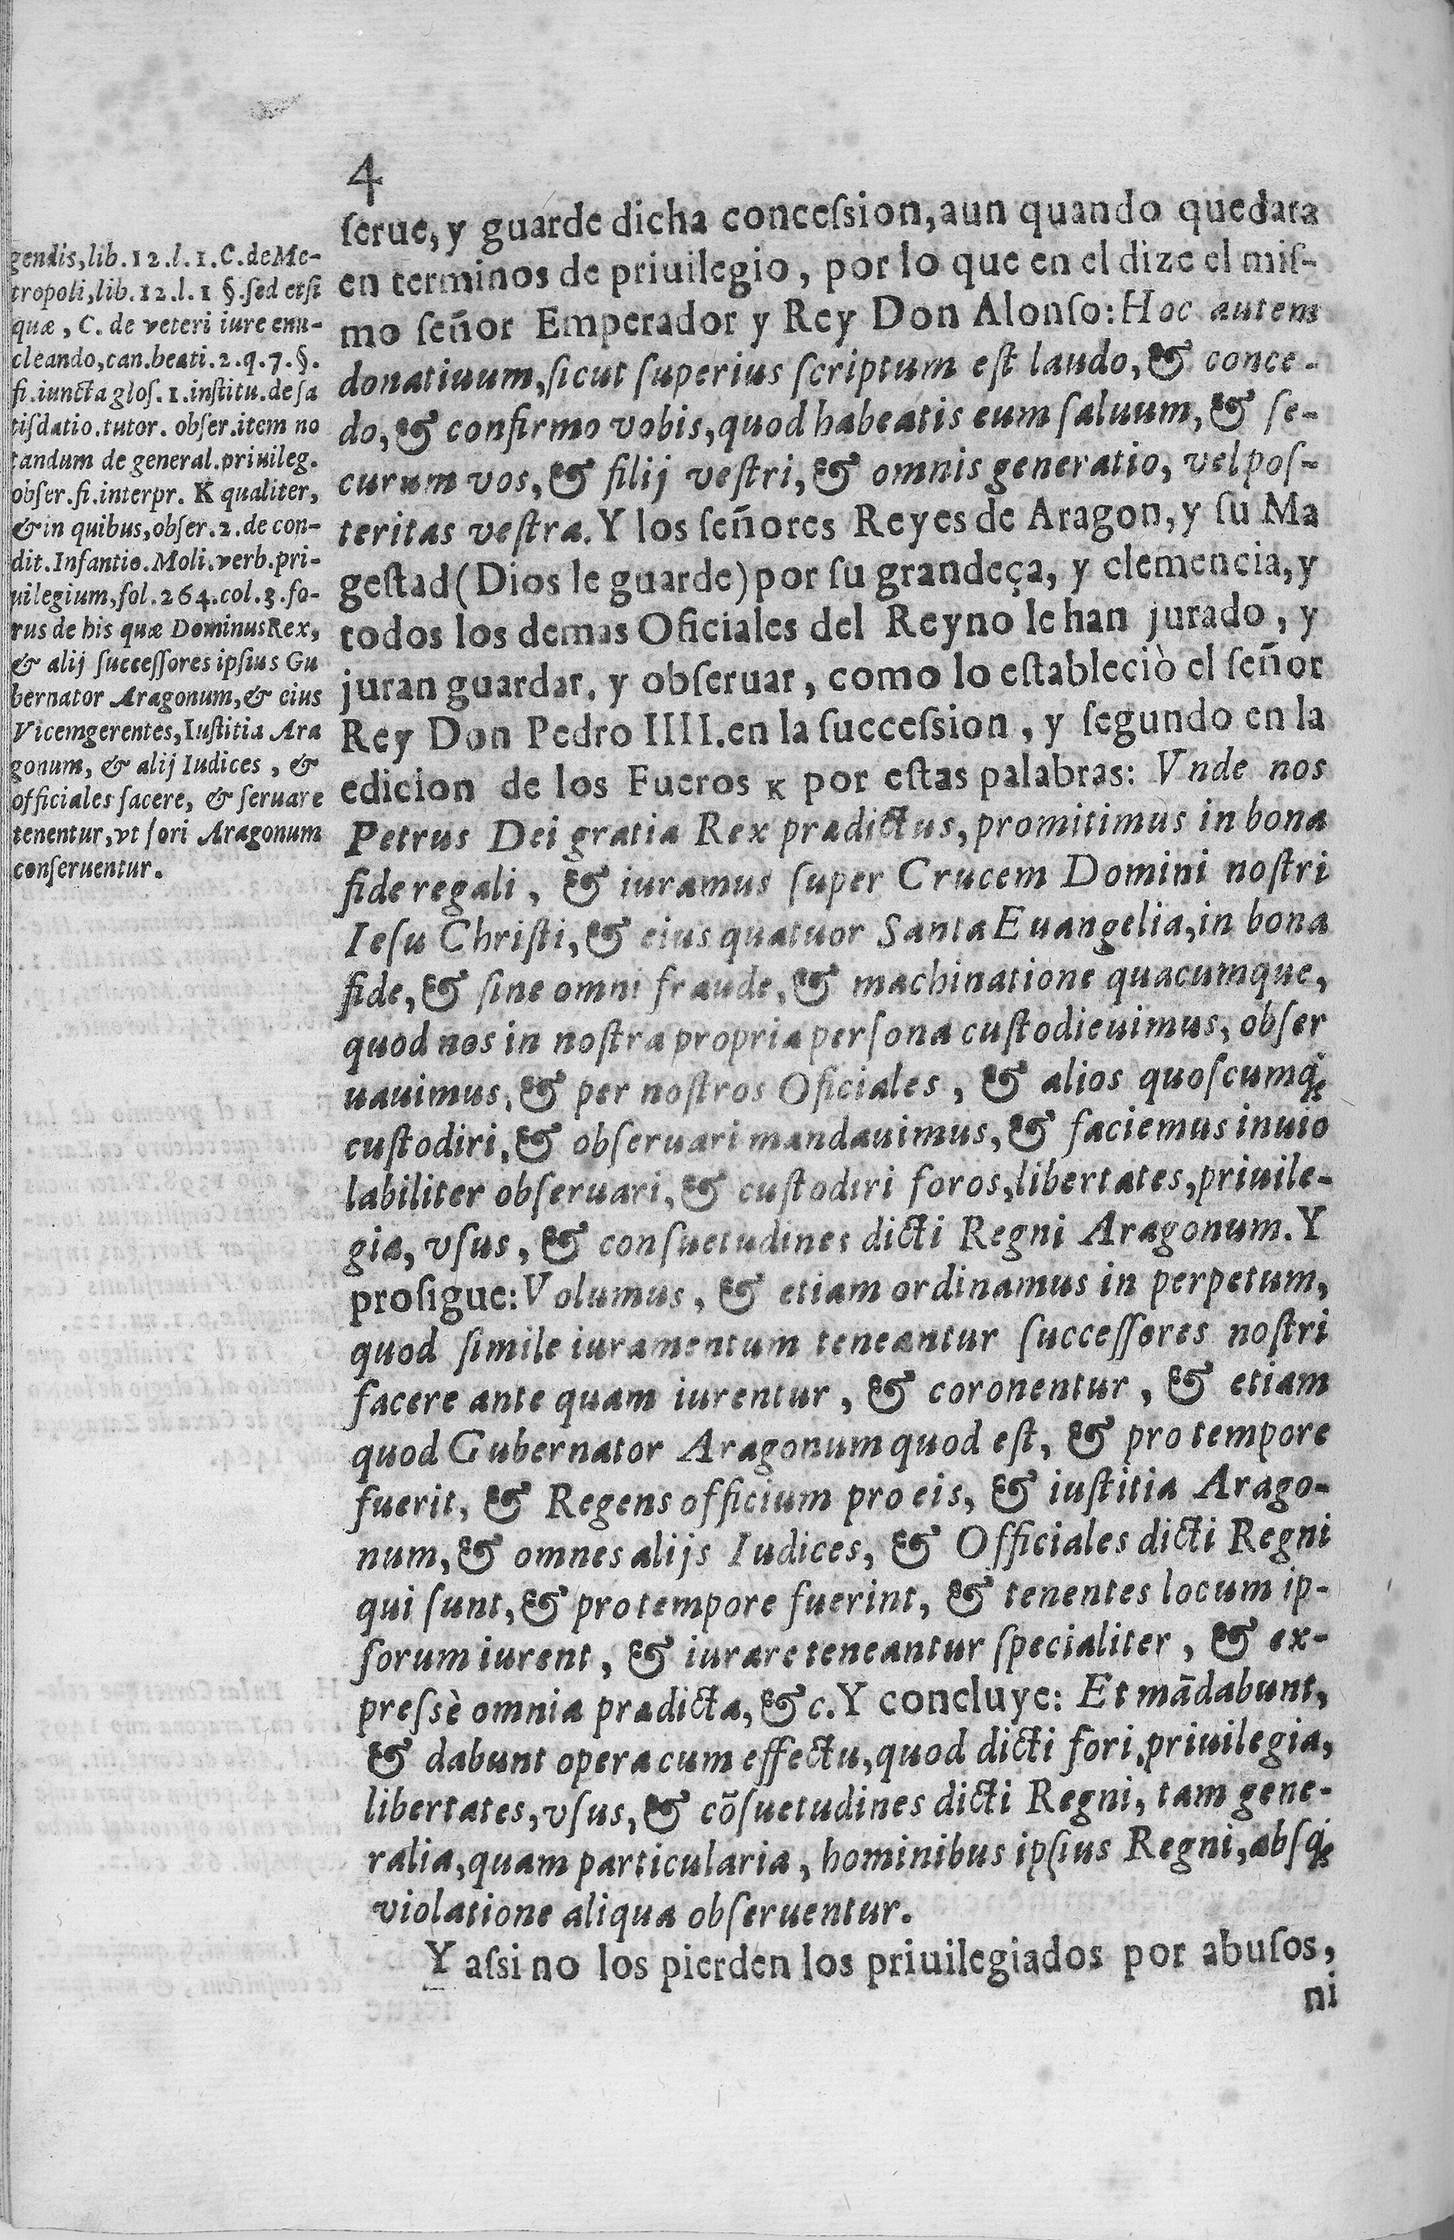 4
gendis,lib.12.l.1.C.de Me-
tropoli,lib.12.l.1 §.sed etsi
quæ, C. de veteri iure enu-
cleando,can.beati.2.q.7.§.
fi.iuncta glos.1.institu.de sa
tisdatio.tutor. obser.item no
tandum de general.priuileg.
obser.fi.interpr. K qualiter,
& in quibus,obser.2.de con-
dit.Infantio.Moli.verb.pri-
uilegium,fol.264.col.3.fo-
rus de his quæ Dominus Rex,
& alij successores ipsius Gu
bernator Aragonum,& eius
Vicemgerentes,Iustitia Ara
gonum, & alij Iudices, &
officiales facere, & seruare
tenentur,vt fori Aragonum
conseruentur.
serue, y guarde dicha concession, aun quando quedara
en terminos de priuilegio, por lo que en el dize el mis-
mo señor Emperador y Rey Don Alonso: Hoc autem
donatiuum,sicut superius scriptum est laudo, & conce-
do, & confirmo vobis,quod habeatis eum saluum, & se-
curum vos, & filij vestri, & omnis generatio, vel pos-
teritas vestra. Y los señores Reyes de Aragon, y su Ma
gestad (Dios le guarde) por su grandeça, y clemencia, y
todos los demas Oficiales del Reyno le han jurado, y
juran guardar, y obseruar, como lo estableciò el señor
Rey Don Pedro IIII. en la succession, y segundo en la
edicion de los Fueros K por estas palabras: Vnde nos
Petrus Dei gratia Rex pradictus, promitimus in bona
fide regali, & iuramus super Crucem Domini nostri
Iesu Christi, & eius quatuor Santa Euangelia,in bona
fide, & sine omni fraude, & machinatione quacumque,
quod nos in nostra propria persona custodieuimus, obser
uauimus, & per nostros Oficiales, & alios quoscumq;
custodiri, & obseruari mandauimus, & faciemus inuio
labiliter obseruari, & custodiri foros,libertates,priuile-
gia, vsus, & consuetudines dicti Regni Aragonum. Y
prosigue: Volumus, & etiam ordinamus in perpetum,
quod simile iuramentum teneantur successores nostri
facere ante quam iurentur, & coronentur, & etiam
quod Gubernator Aragonum quod est, & pro tempore
fuerit, & Regens officium pro eis, & iustitia Arago-
num, & omnes alijs Iudices, & Officiales dicti Regni
qui sunt, & pro tempore fuerint, & tenentes locum ip-
sorum iurent, & iurare teneantur specialiter, & ex-
pressè omnia pradicta, &c. Y concluye: Et mādabunt,
& dabunt opera cum effectu,quod dicti fori,priuilegia,
libertates,vsus, & cōsuetudines dicti Regni, tam gene-
ralia,quam particularia, hominibus ipsius Regni,absq;
violatione aliqua obseruentur.
Y assi no los pierden los priuilegiados por abusos,
ni